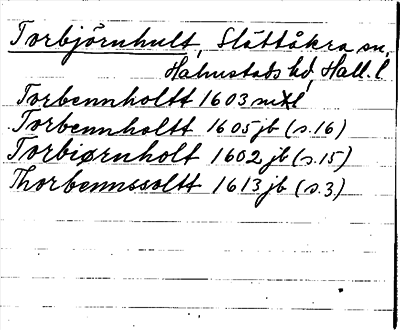 Torbjörnhult, Slättåkra sn,
Halmstads hd, Hall. l.
Torbennholtt 1603 mtxl
Torbennholtt 1605 jb (s.16)
Torbiørnholt 1602 jb (s.15)
Thorbennssoltt 1613 jb (s.3)